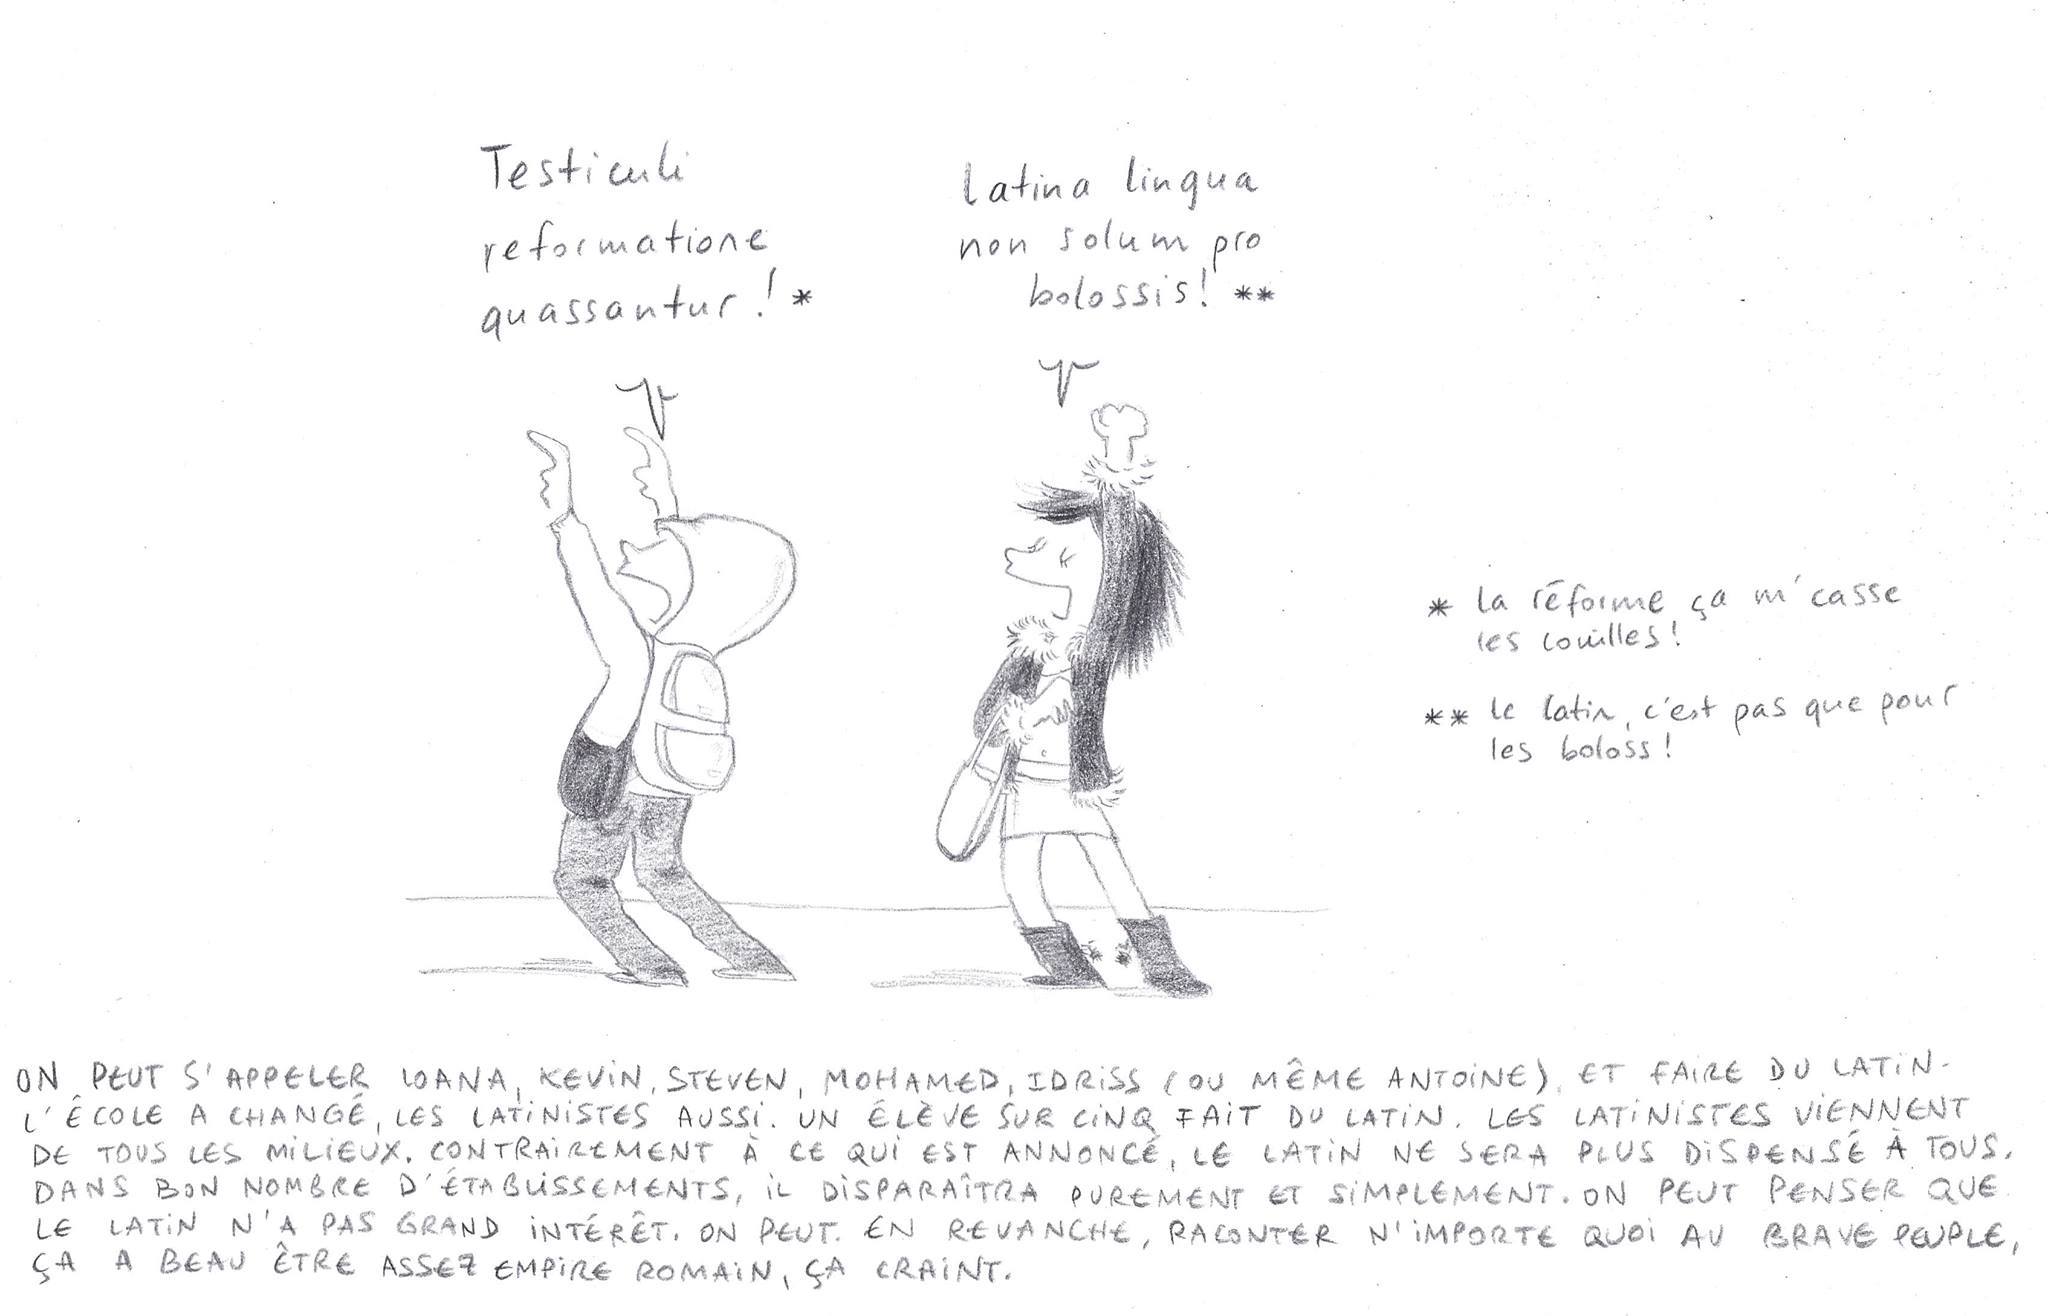 Testiculi
reformatione
quassantur! *
Latina lingua
non solum pro
bolossis! **
* La réforme ça m'casse
les couilles!
** Le latin, c'est pas que pour
les boloss!
ON PEUT S'APPELER LOANA, KEVIN, STEVEN, MOHAMED, IDRISS (OU MÊME ANTOINE), ET FAIRE DU LATIN.
L'ÉCOLE A CHANGÉ, LES LATINISTES AUSSI. UN ÉLÈVE SUR CINQ FAIT DU LATIN. LES LATINISTES VIENNENT
DE TOUS LES MILIEUX. CONTRAIREMENT À CE QUI EST ANNONCÉ, LE LATIN NE SERA PLUS DISPENSÉ À TOUS.
DANS BON NOMBRE D'ÉTABLISSEMENTS, IL DISPARAÎTRA PUREMENT ET SIMPLEMENT. ON PEUT PENSER QUE
LE LATIN N'A PAS GRAND INTÉRÊT. ON PEUT. EN REVANCHE, RACONTER N'IMPORTE QUOI AU BRAVE PEUPLE,
ÇA A BEAU ÊTRE ASSEZ EMPIRE ROMAIN, ÇA CRAINT.